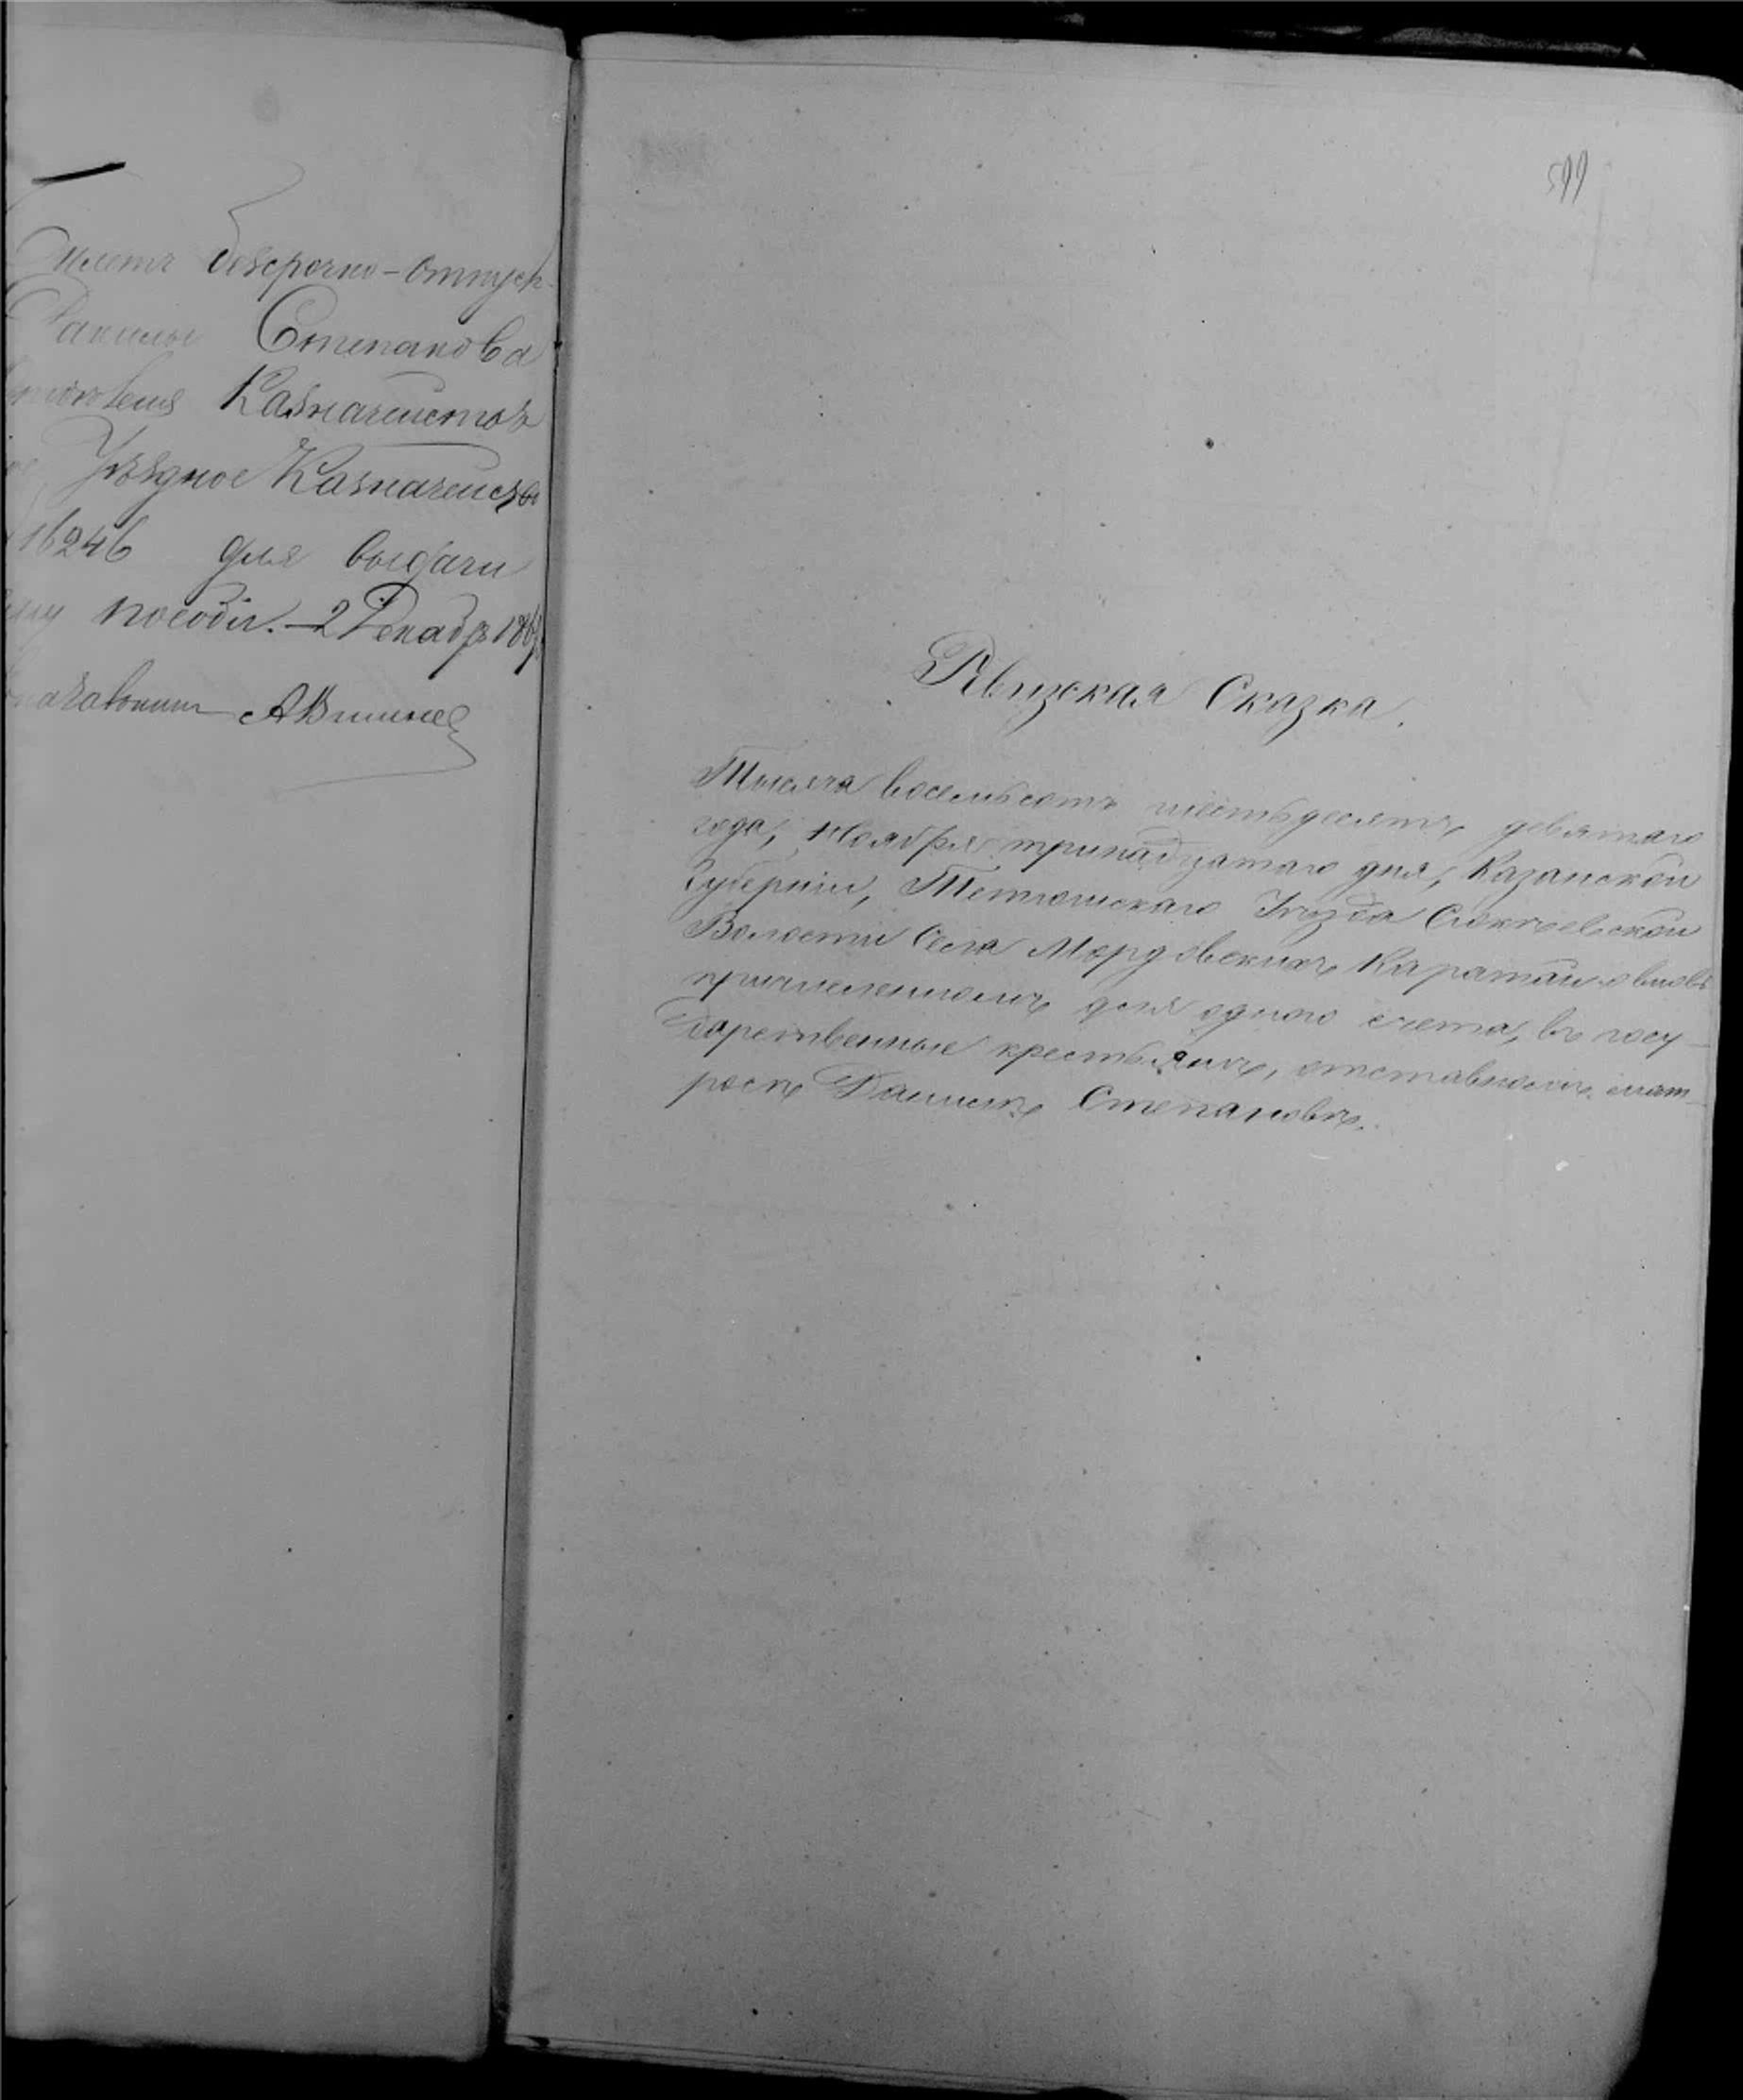 Билетъ безсрочно-отпуск-
Данилы Степанова
Казначействъ
Уѣздное Казначейство
16246 для выдачи
пособія. 2 Декабря 186
599
Ревизская Сказка.
Тысяча восемьсотъ шестьдесятъ девятаго
года, Ноября тринадцатаго дня, Казанской
Губерніи, Тетюшскаго Уѣзда Сюкеевской
Волости Села Мордовскихъ Каратай о вновь
причисленномъ для одного счета, въ госу-
дарственные крестьяне, отставномъ мат-
росѣ Данилѣ Степановѣ.